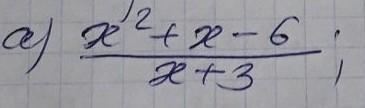 а) (x² + x - 6)/(x + 3);